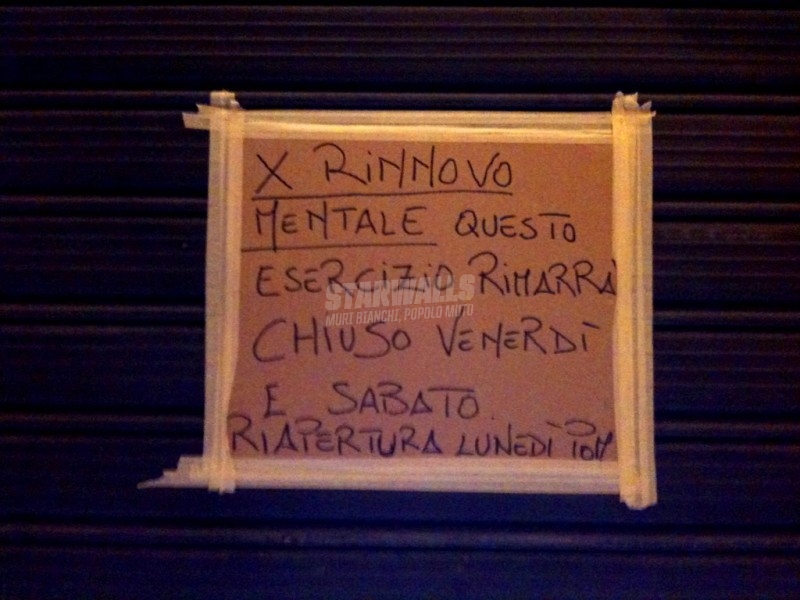 X RINNOVO
MENTALE QUESTO
ESERCIZIO RIMARRÀ
STARWALLS
MURI BIANCHI, POPOLO MUTO
CHIUSO VENERDÌ
E SABATO.
RIAPERTURA LUNEDÌ POM